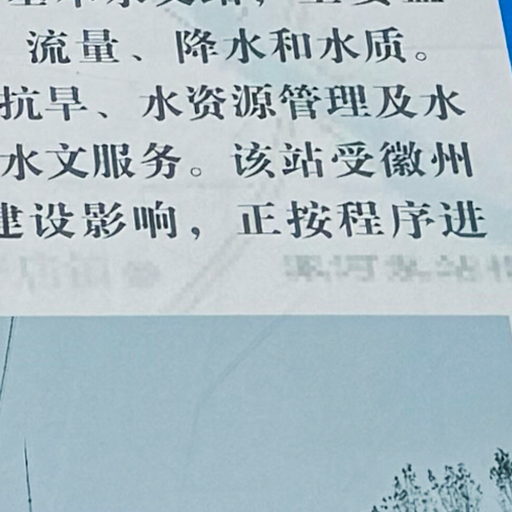 流量、降水和水质。
抗旱、水资源管理及水
水文服务。该站受徽州
建设影响，正按程序进